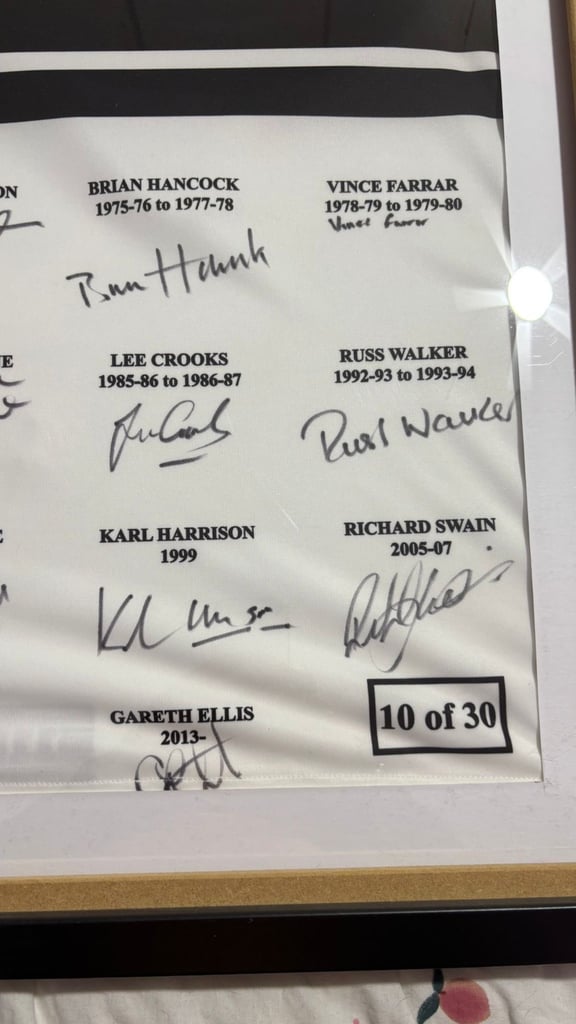 ON
BRIAN HANCOCK
1975-76 to 1977-78
Brian Hancock
VINCE FARRAR
1978-79 to 1979-80
Vince Farrar
E
LEE CROOKS
1985-86 to 1986-87
RUSS WALKER
1992-93 to 1993-94
Russ Walker
KARL HARRISON
1999
RICHARD SWAIN
2005-07
GARETH ELLIS
2013-
10 of 30